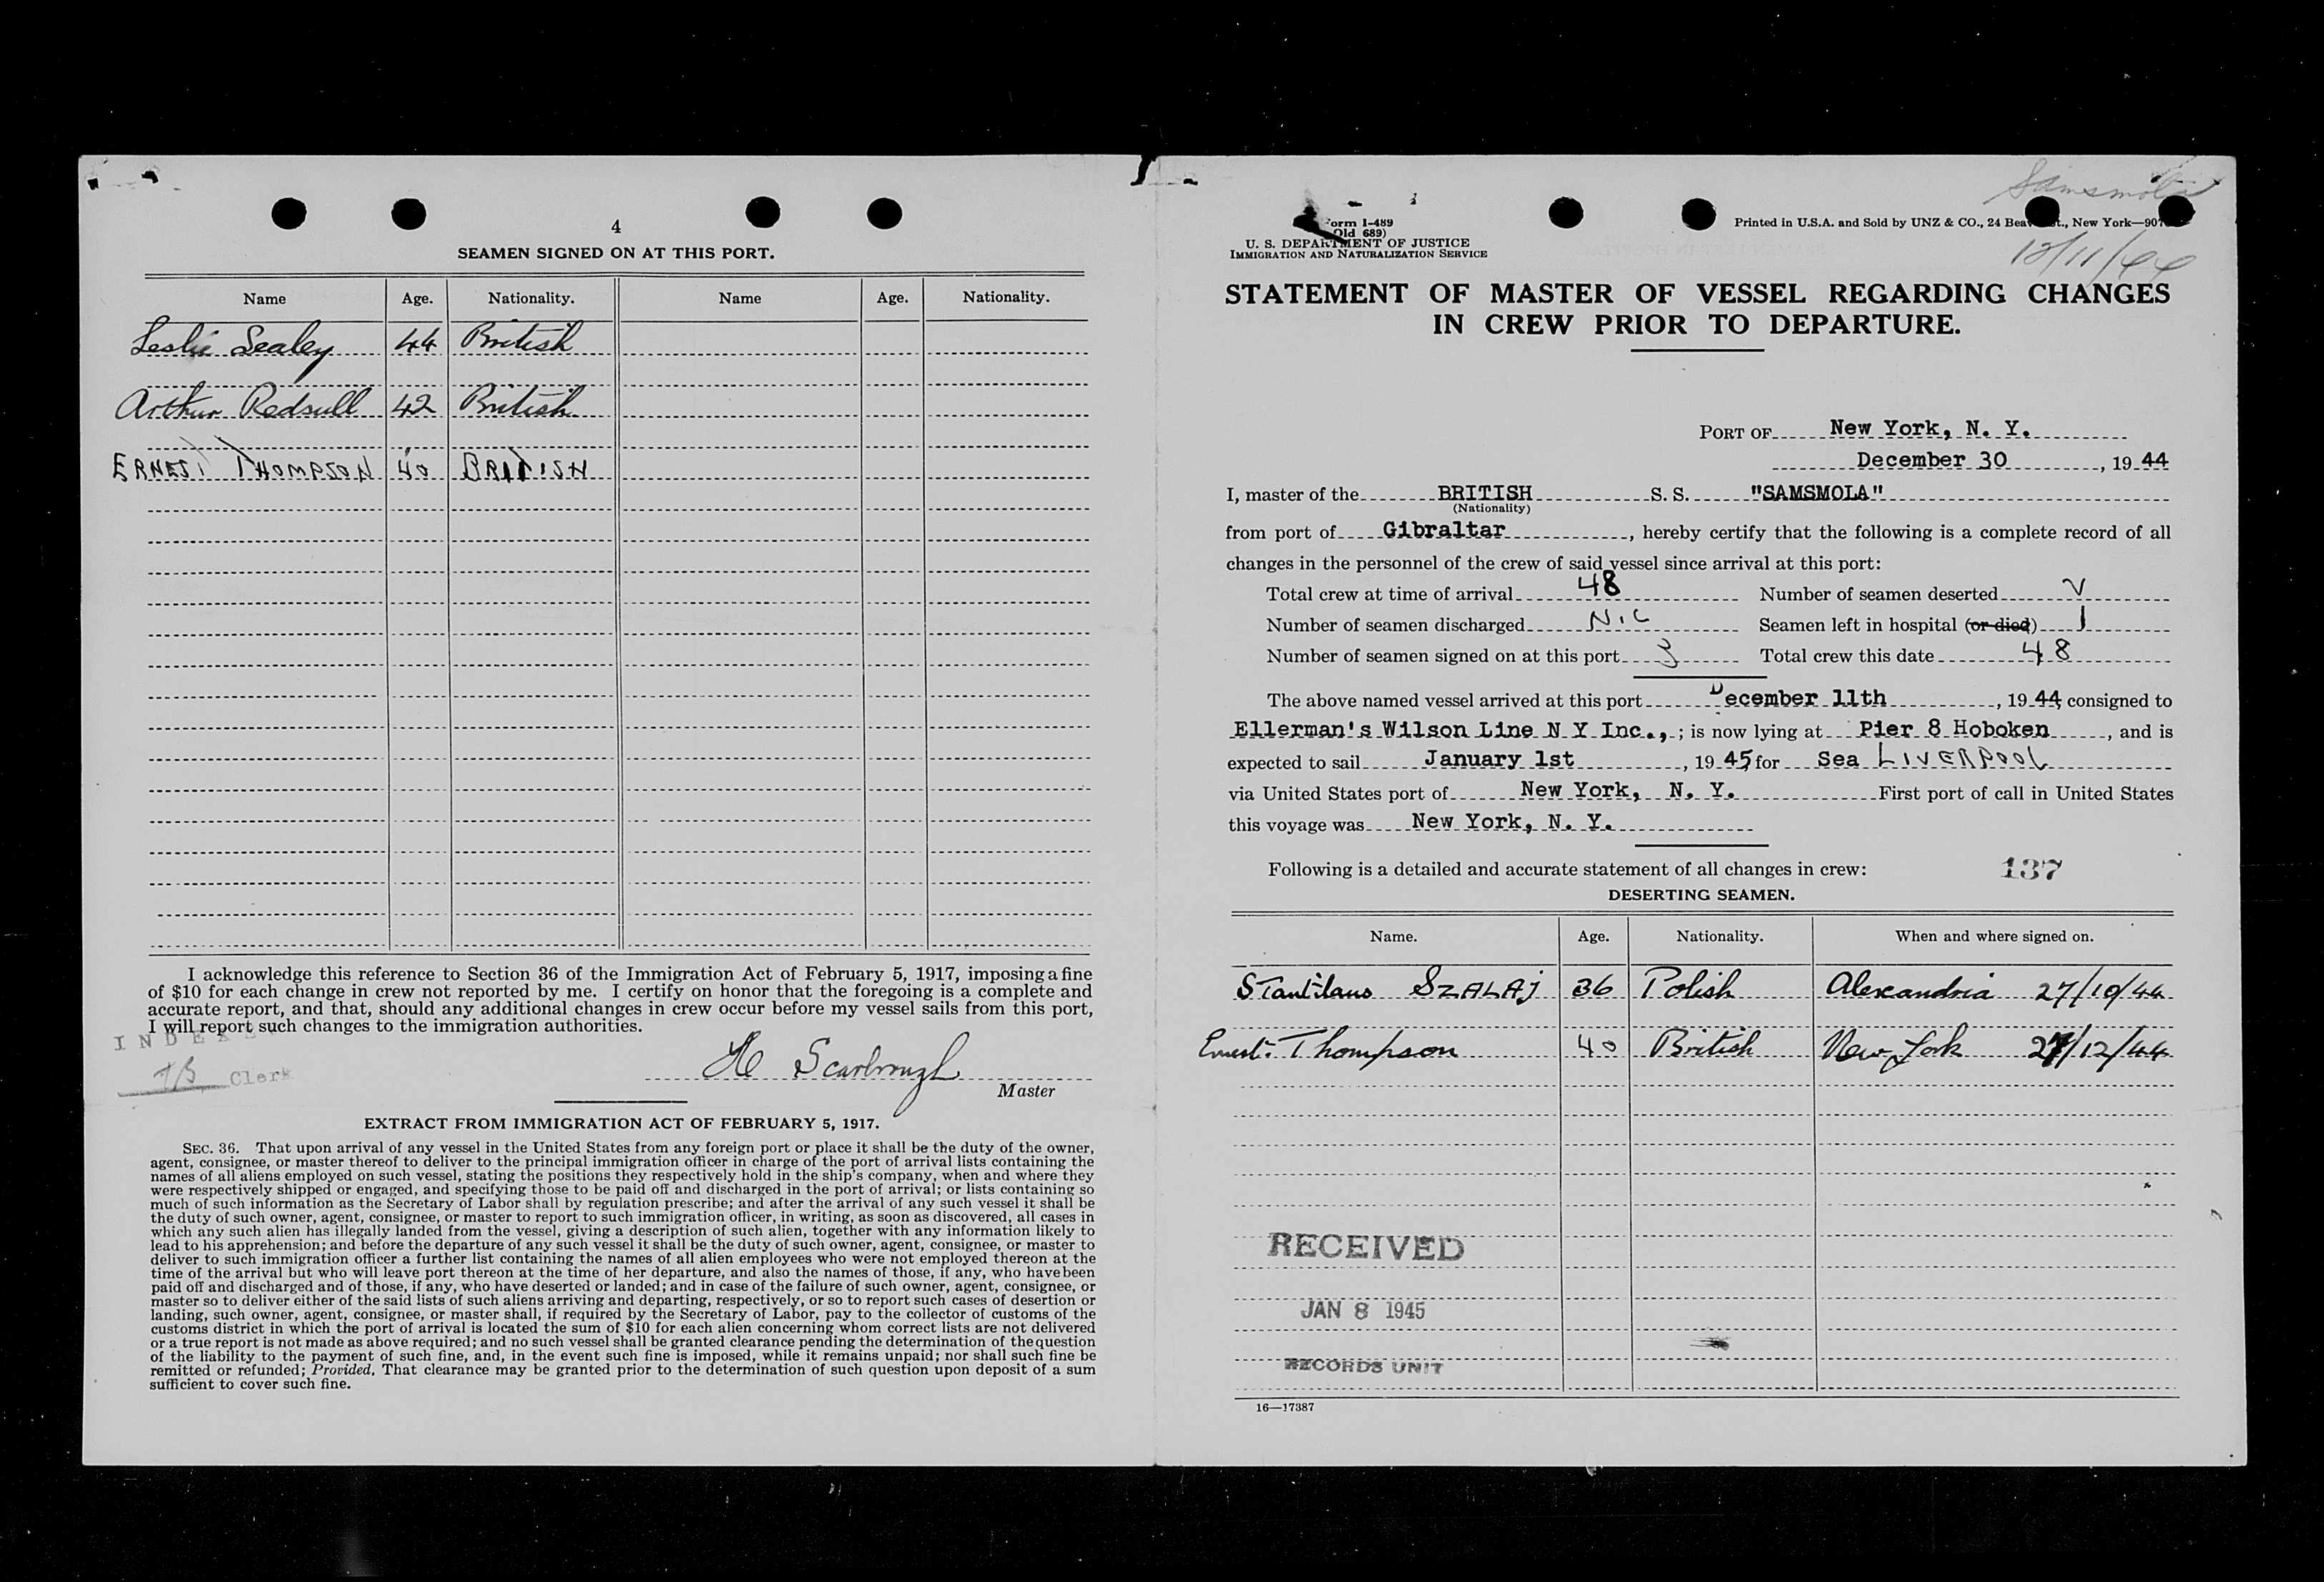 4
SEAMEN SIGNED ON AT THIS PORT.
Name Age. Nationality. Name Age. Nationality.
Leslie Sealey 44 British
Arthur Redsull 42 British
ERNEST THOMPSON 40 BRITISH
I acknowledge this reference to Section 36 of the Immigration Act of February 5, 1917, imposing a fine
of $10 for each change in crew not reported by me. I certify on honor that the foregoing is a complete and
accurate report, and that, should any additional changes in crew occur before my vessel sails from this port,
I will report such changes to the immigration authorities.
Clerk
H Scarbrough
Master
EXTRACT FROM IMMIGRATION ACT OF FEBRUARY 5, 1917.
SEC. 36. That upon arrival of any vessel in the United States from any foreign port or place it shall be the duty of the owner,
agent, consignee, or master thereof to deliver to the principal immigration officer in charge of the port of arrival lists containing the
names of all aliens employed on such vessel, stating the positions they respectively hold in the ship's company, when and where they
were respectively shipped or engaged, and specifying those to be paid off and discharged in the port of arrival; or lists containing so
much of such information as the Secretary of Labor shall by regulation prescribe; and after the arrival of any such vessel it shall be
the duty of such owner, agent, consignee, or master to report to such immigration officer, in writing, as soon as discovered, all cases in
which any such alien has illegally landed from the vessel, giving a description of such alien, together with any information likely to
lead to his apprehension; and before the departure of any such vessel it shall be the duty of such owner, agent, consignee, or master to
deliver to such immigration officer a further list containing the names of all alien employees who were not employed thereon at the
time of the arrival but who will leave port thereon at the time of her departure, and also the names of those, if any, who have been
paid off and discharged and of those, if any, who have deserted or landed; and in case of the failure of such owner, agent, consignee, or
master so to deliver either of the said lists of such aliens arriving and departing, respectively, or so to report such cases of desertion or
landing, such owner, agent, consignee, or master shall, if required by the Secretary of Labor, pay to the collector of customs of the
customs district in which the port of arrival is located the sum of $10 for each alien concerning whom correct lists are not delivered
or a true report is not made as above required; and no such vessel shall be granted clearance pending the determination of the question
of the liability to the payment of such fine, and, in the event such fine is imposed, while it remains unpaid; nor shall such fine be
remitted or refunded; Provided, That clearance may be granted prior to the determination of such question upon deposit of a sum
sufficient to cover such fine.
Samsmola
12/11/44
Form I-489
Old 689)
U. S. DEPARTMENT OF JUSTICE
IMMIGRATION AND NATURALIZATION SERVICE
Printed in U.S.A. and Sold by UNZ & CO., 24 Beaver St., New York—907
STATEMENT OF MASTER OF VESSEL REGARDING CHANGES
IN CREW PRIOR TO DEPARTURE.
PORT OF New York, N. Y.
December 30, 19 44
I, master of the BRITISH S. S. "SAMSMOLA"
(Nationality)
from port of Gibraltar, hereby certify that the following is a complete record of all
changes in the personnel of the crew of said vessel since arrival at this port:
Total crew at time of arrival 48 Number of seamen deserted V
Number of seamen discharged NIL Seamen left in hospital (or died) 1
Number of seamen signed on at this port 3 Total crew this date 48
The above named vessel arrived at this port December 11th, 19 44 consigned to
Ellerman's Wilson Line N Y Inc.,; is now lying at Pier 8 Hoboken, and is
expected to sail January 1st, 19 45 for Sea LIVERPOOL
via United States port of New York, N. Y. First port of call in United States
this voyage was New York, N. Y.
Following is a detailed and accurate statement of all changes in crew: 137
DESERTING SEAMEN.
Name. Age. Nationality. When and where signed on.
Stanilaus SZALAJ 36 Polish Alexandria 27/10/44
Ernest Thompson 40 British New York 27/12/44
RECEIVED
JAN 8 1945
RECORDS UNIT
16—17387